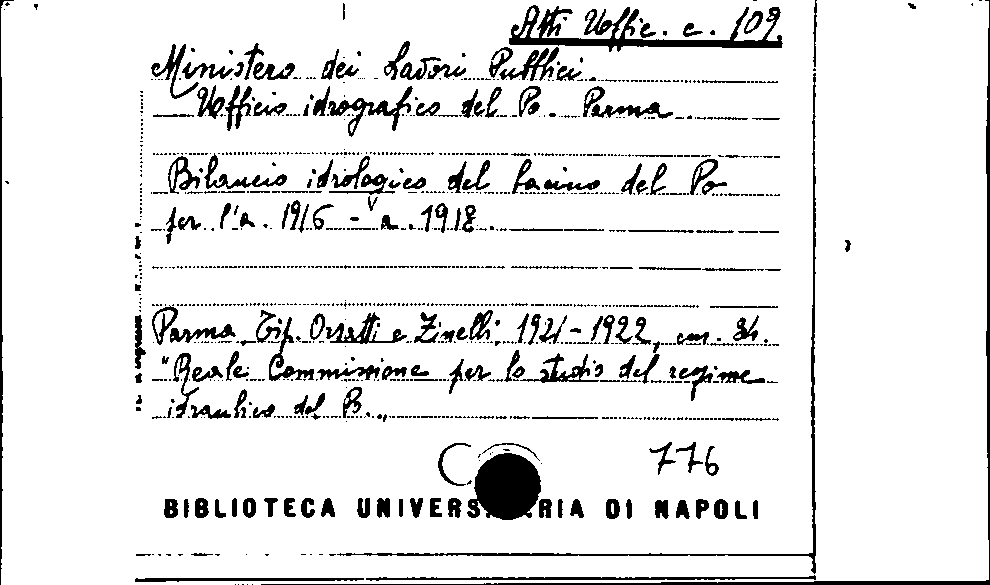 Atti Uffic. c. 109.
Ministero dei Lavori Pubblici.
Ufficio idrografico del Po. Parma.
Bilancio idrologico del bacino del Po
per l'a. 1916 - a. 1918.
Parma, Tip. Orsatti e Zinelli, 1921-1922, cm. 34.
"Reale Commissione per lo studio del regime
idraulico del P.„
776
BIBLIOTECA UNIVERS RIA DI NAPOLI